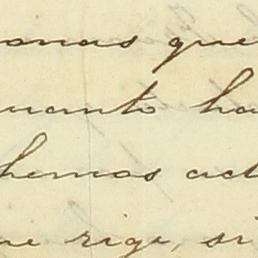 onas que
uanto ha
hemos act
ue rige, si